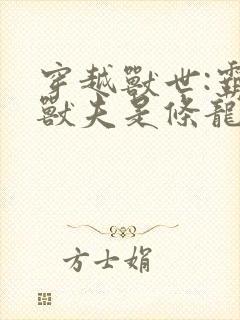 穿越獸世:霸
獸夫是條龍
方士娟